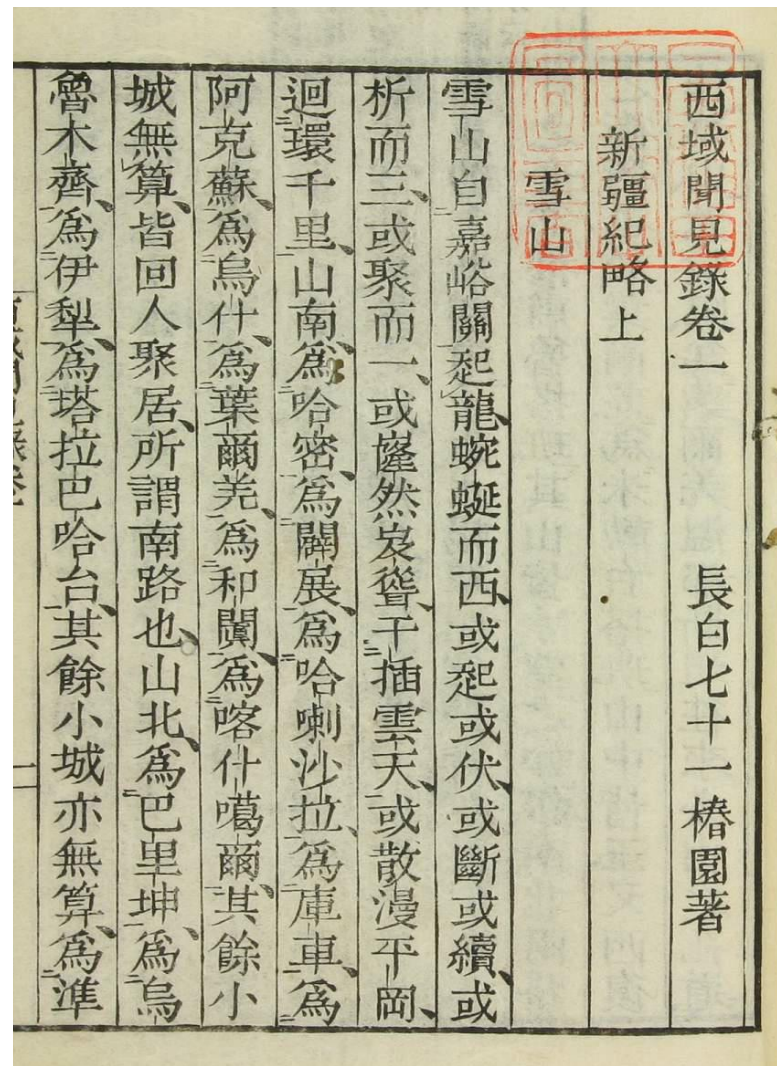 西域聞見錄卷一
長白七十一椿園著
新疆紀略上
雪山
雪山自嘉峪關起龍蜿蜒而西或起或伏或斷或續或
析而三或聚而一或嶐然岌聳干插雲天或散漫平岡
迴環千里山南爲哈密爲闢展爲哈喇沙拉爲庫車爲
阿克蘇爲烏什爲葉爾羌爲和闐爲喀什噶爾其餘小
城無算皆回人聚居所謂南路也山北爲巴里坤爲烏
魯木齊爲伊犁爲塔拉巴哈台其餘小城亦無算爲準